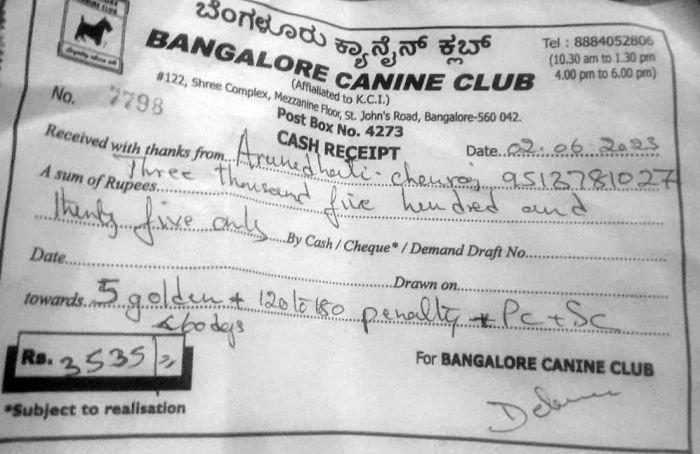 CANINE CLUB
ಬೆಂಗಳೂರು ಕ್ಯಾನೈನ್ ಕ್ಲಬ್
BANGALORE CANINE CLUB
(Affialiated to K.C.I.)
#122, Shree Complex, Mezzanine Floor, St. John's Road, Bangalore-560 042.
Post Box No. 4273
Tel : 8884052806
(10.30 am to 1.30 pm
4.00 pm to 6.00 pm)
No. 7798
CASH RECEIPT
Date 02.06.2023
Received with thanks from Arundhati chenraj 9513781027
A sum of Rupees Three thousand five hundred and
thirty five only By Cash / Cheque* / Demand Draft No.
Date Drawn on
towards 5 golden + 120 to 180 penalty + Pc + Sc
<60 days
Rs. 3535/=
For BANGALORE CANINE CLUB
*Subject to realisation